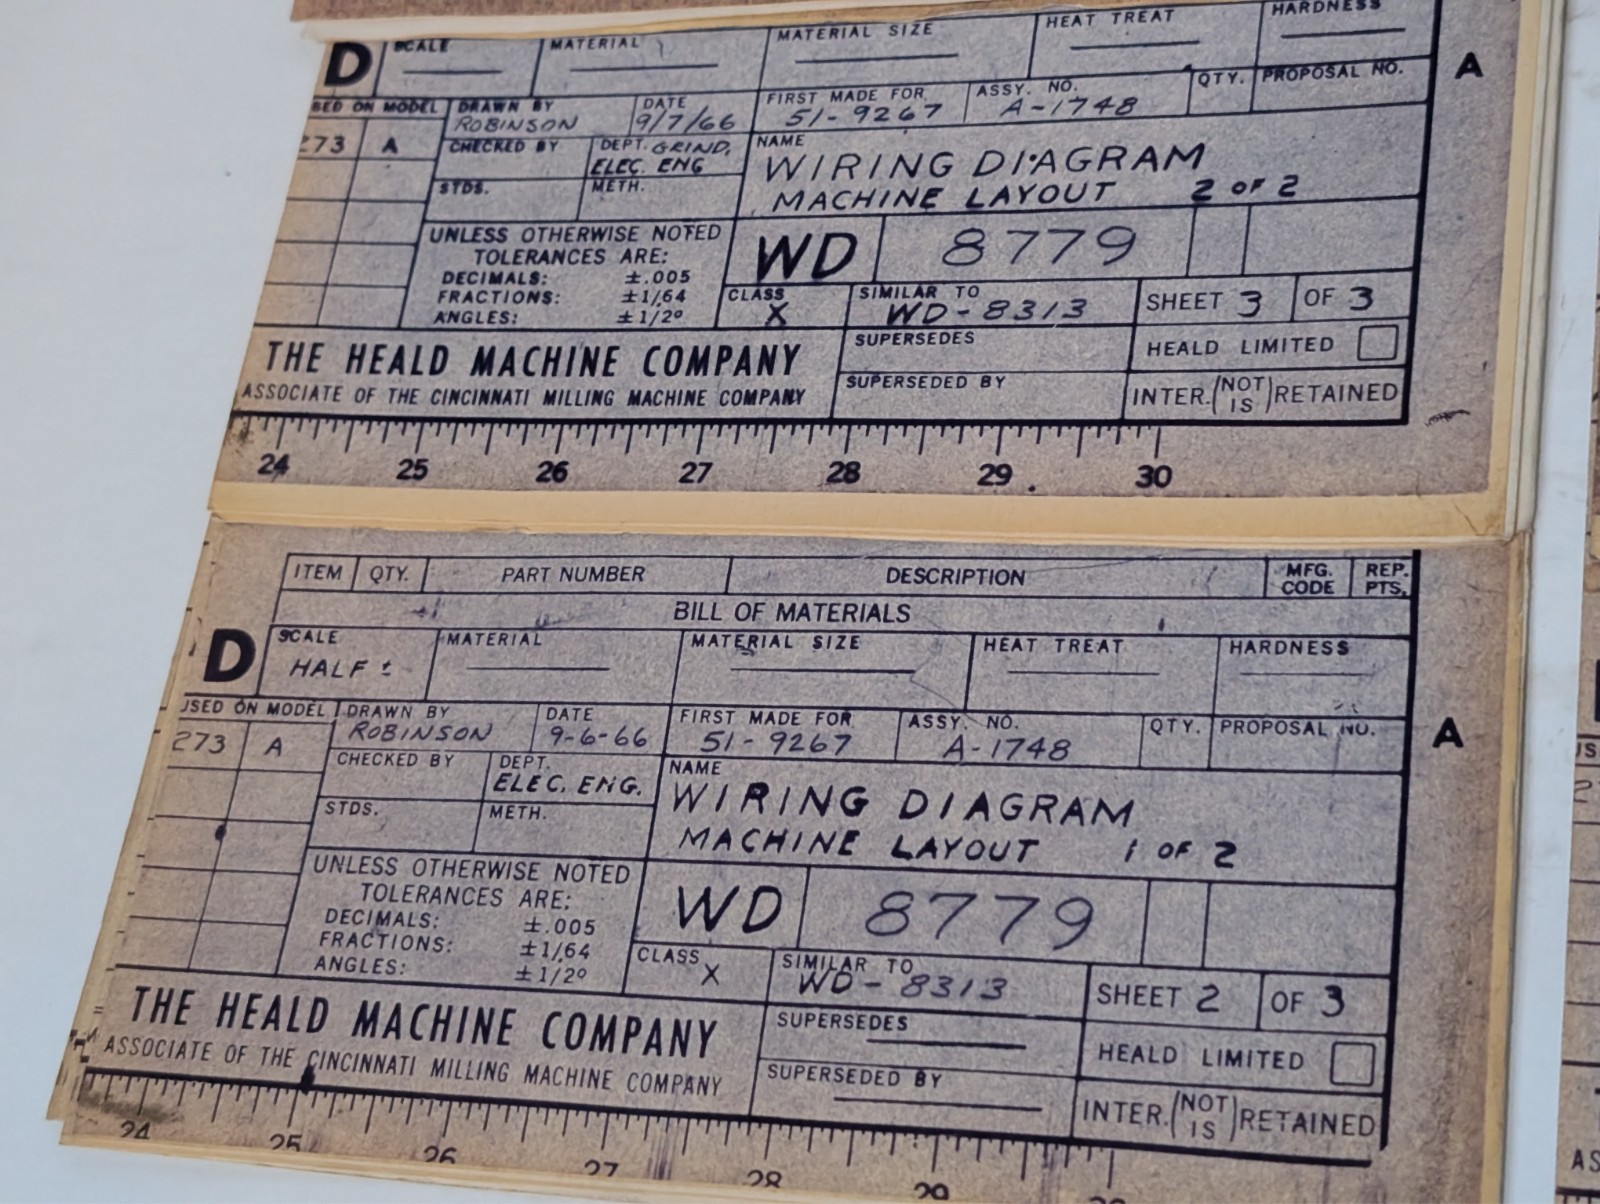 D SCALE MATERIAL MATERIAL SIZE HEAT TREAT HARDNESS
USED ON MODEL DRAWN BY DATE FIRST MADE FOR ASSY. NO. QTY. PROPOSAL NO. A
ROBINSON 9/7/66 51-9267 A-1748
273 A CHECKED BY DEPT. GRIND, NAME
ELEC. ENG WIRING DIAGRAM
STDS. METH. MACHINE LAYOUT 2 OF 2
UNLESS OTHERWISE NOTED
TOLERANCES ARE: WD 8779
DECIMALS: ±.005
FRACTIONS: ±1/64 CLASS SIMILAR TO SHEET 3 OF 3
ANGLES: ±1/2° X WD-8313
THE HEALD MACHINE COMPANY SUPERSEDES HEALD LIMITED
ASSOCIATE OF THE CINCINNATI MILLING MACHINE COMPANY SUPERSEDED BY INTER. (NOT IS) RETAINED
24 25 26 27 28 29 30
ITEM QTY. PART NUMBER DESCRIPTION MFG. CODE REP. PTS.
BILL OF MATERIALS
D SCALE MATERIAL MATERIAL SIZE HEAT TREAT HARDNESS
HALF ±
USED ON MODEL DRAWN BY DATE FIRST MADE FOR ASSY. NO. QTY. PROPOSAL NO. A
273 A ROBINSON 9-6-66 51-9267 A-1748
CHECKED BY DEPT. NAME
ELEC. ENG. WIRING DIAGRAM
STDS. METH. MACHINE LAYOUT 1 OF 2
UNLESS OTHERWISE NOTED
TOLERANCES ARE: WD 8779
DECIMALS: ±.005
FRACTIONS: ±1/64 CLASS SIMILAR TO SHEET 2 OF 3
ANGLES: ±1/2° X WD-8313
THE HEALD MACHINE COMPANY SUPERSEDES HEALD LIMITED
ASSOCIATE OF THE CINCINNATI MILLING MACHINE COMPANY SUPERSEDED BY INTER. (NOT IS) RETAINED
24 25 26 27 28 29